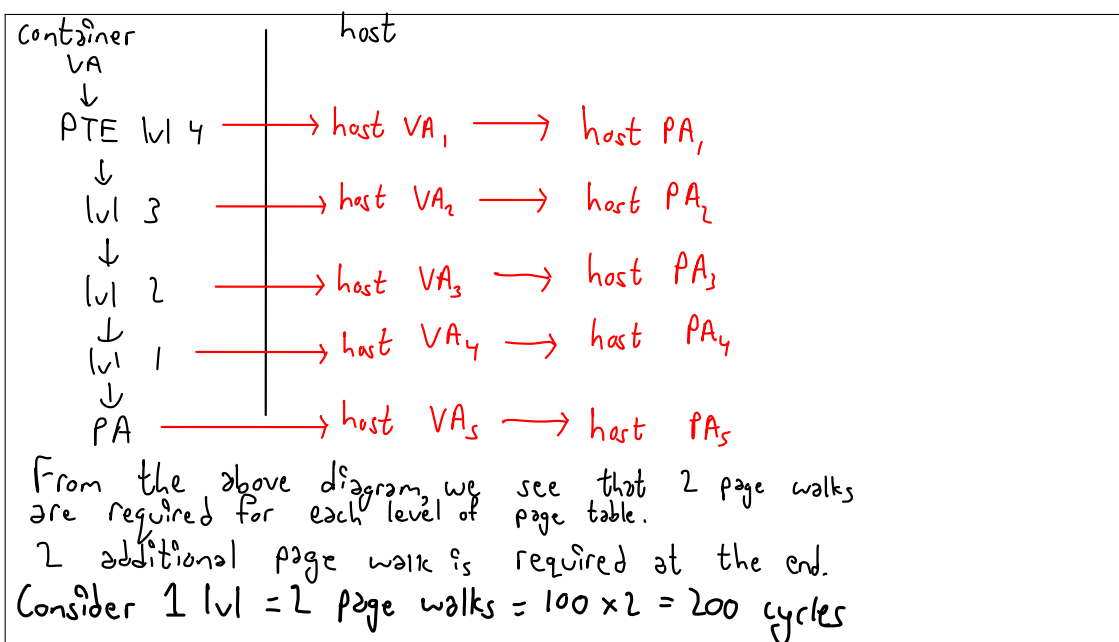 container host
VA
↓
PTE lvl 4 → host VA₁ → host PA₁
↓
lvl 3 → host VA₂ → host PA₂
↓
lvl 2 → host VA₃ → host PA₃
↓
lvl 1 → host VA₄ → host PA₄
↓
PA → host VA₅ → host PA₅
From the above diagram, we see that 2 page walks
are required for each level of page table.
2 additional page walk is required at the end.
Consider 1 lvl = 2 page walks = 100 × 2 = 200 cycles